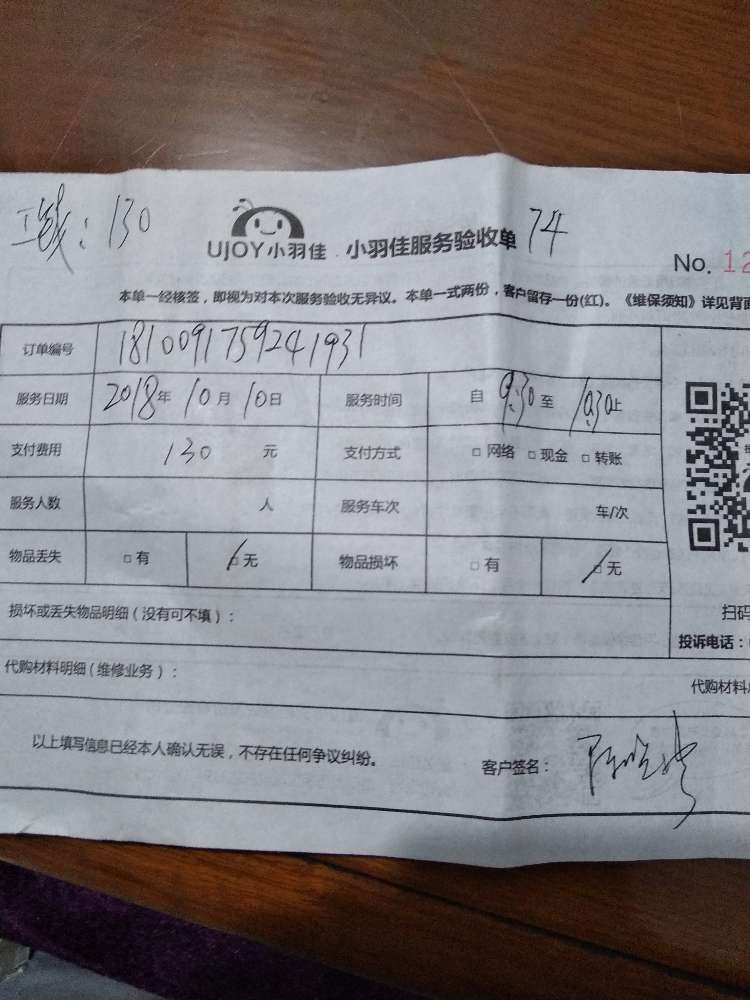 工钱：130
UJOY小羽佳 小羽佳服务验收单 74
No. 12
本单一经核签，即视为对本次服务验收无异议。本单一式两份，客户留存一份(红)。《维保须知》详见背面
订单编号 181009175924 1931
服务日期 2018年 10月 10日 服务时间 自 9:30 至 10:30 止
支付费用 130 元 支付方式 □ 网络 □ 现金 □ 转账
服务人数 人 服务车次 车/次
物品丢失 □ 有 □ 无 物品损坏 □ 有 □ 无
损坏或丢失物品明细（没有可不填）：
扫码
投诉电话：
代购材料明细（维修业务）：
代购材料
以上填写信息已经本人确认无误，不存在任何争议纠纷。
客户签名：